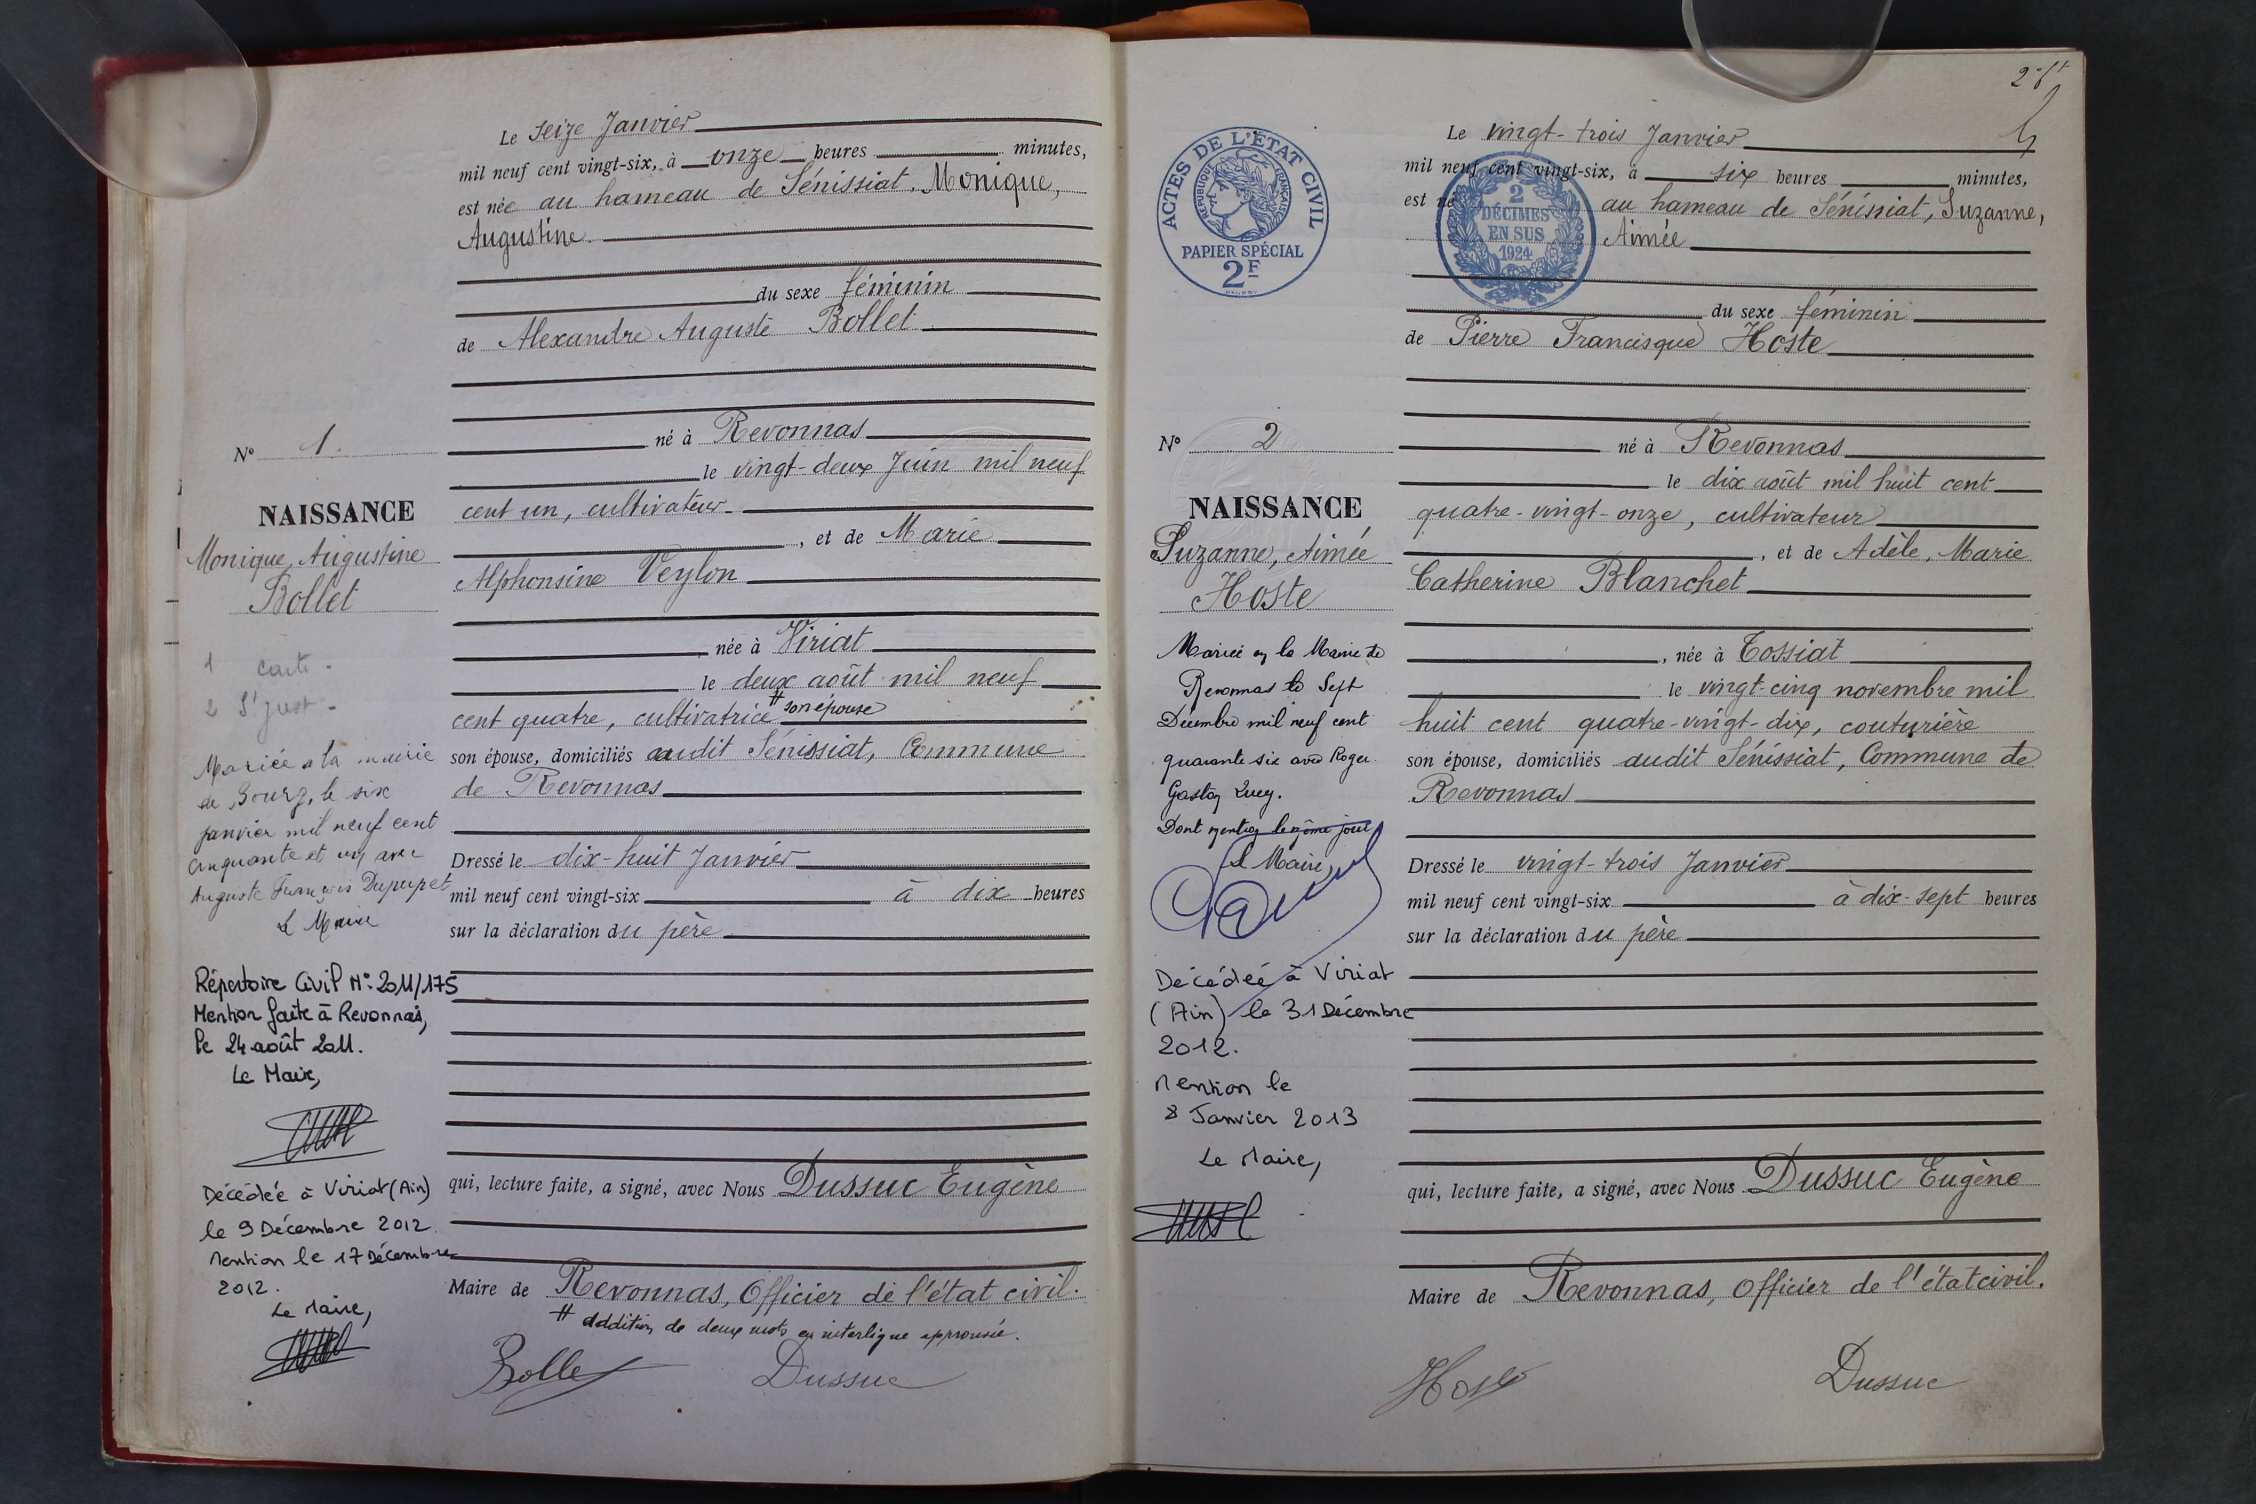 Le seize Janvier
mil neuf cent vingt-six, à onze heures minutes,
est née au hameau de Sénissiat, Monique,
Augustine
du sexe féminin
de Alexandre Auguste Bollet
né à Revonnas
le vingt-deux Juin mil neuf
cent un, cultivateur
, et de Marie
Alphonsine Veylon
née à Viriat
le deux août mil neuf
cent quatre, cultivatrice # son épouse
son épouse, domiciliés audit Sénissiat, Commune
de Revonnas
Dressé le dix-huit Janvier
mil neuf cent vingt-six à dix heures
sur la déclaration du père
qui, lecture faite, a signé, avec Nous Dussuc Eugène
Maire de Revonnas, Officier de l'état civil.
# addition de deux mots en interligne approuvée.
Bollet Dussuc
N° 1.
NAISSANCE
Monique, Augustine
Bollet
1 carte -
2 St Just -
Mariée à la mairie
de Bourg, le six
janvier mil neuf cent
cinquante et un avec
Auguste François Dupupet
Le Maire
Répertoire Civil N°: 2011/175
Mention faite à Revonnas,
le 24 août 2011.
Le Maire,
Décédée à Viriat (Ain)
le 9 Décembre 2012
Mention le 17 Décembre
2012.
Le Maire,
ACTES DE L'ÉTAT CIVIL
RÉPUBLIQUE FRANÇAISE
PAPIER SPÉCIAL
2F
2
DÉCIMES
EN SUS
1924
Le vingt-trois Janvier
mil neuf cent vingt-six, à six heures minutes,
est née au hameau de Sénissiat, Suzanne,
Aimée
du sexe féminin
de Pierre Francisque Hoste
né à Revonnas
le dix août mil huit cent
quatre-vingt-onze, cultivateur
, et de Adèle, Marie
Catherine Blanchet
, née à Tossiat
le vingt-cinq novembre mil
huit cent quatre-vingt-dix, couturière
son épouse, domiciliés audit Sénissiat, Commune de
Revonnas
Dressé le vingt-trois Janvier
mil neuf cent vingt-six à dix-sept heures
sur la déclaration du père
qui, lecture faite, a signé, avec Nous Dussuc Eugène
Maire de Revonnas, Officier de l'état civil.
Hoste Dussuc
N° 2
NAISSANCE
Suzanne, Aimée
Hoste
Mariée en la Mairie de
Revonnas le Sept
Décembre mil neuf cent
quarante six avec Roger
Gaston Quey.
Dont mention le même jour
Le Maire,
Décédée à Viriat
(Ain) le 31 Décembre
2012.
Mention le
8 Janvier 2013
Le Maire,